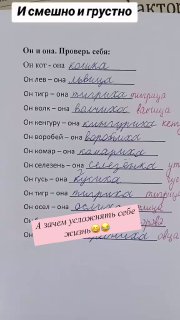 И смешно и грустно
Он и она. Проверь себя:
Он кот - она кошка
Он лев – она львица
Он тигр – она тигриха тигрица
Он волк – она волчиха волчица
Он кенгуру – она кингуриха
Он воробей – она воробьиха
Он комар – она комариха
Он селезень – она селезёнка
Он гусь – она гусиха
Он тигр – она тигриха тигрица
Он осел – она ослиха
А зачем усложнять себе
жизнь😂😂